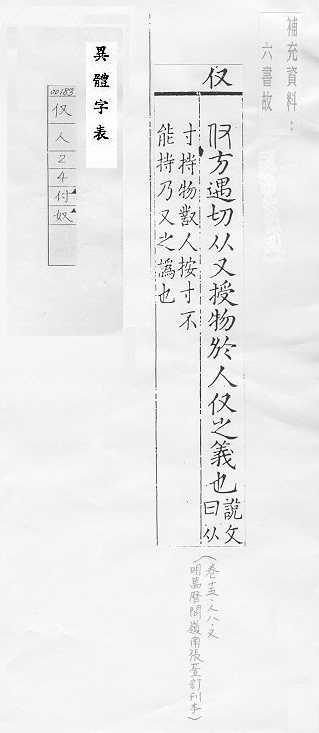 補充資料：
六書故
仅
仅方遇切从又授物於人仅之義也說文曰从
寸持物對人按寸不
能持乃又之譌也
（卷十五．人八．又
明萬曆間嶺南張萱訂刊本）
異體字表
00183
仅
人
2
4
付
奴